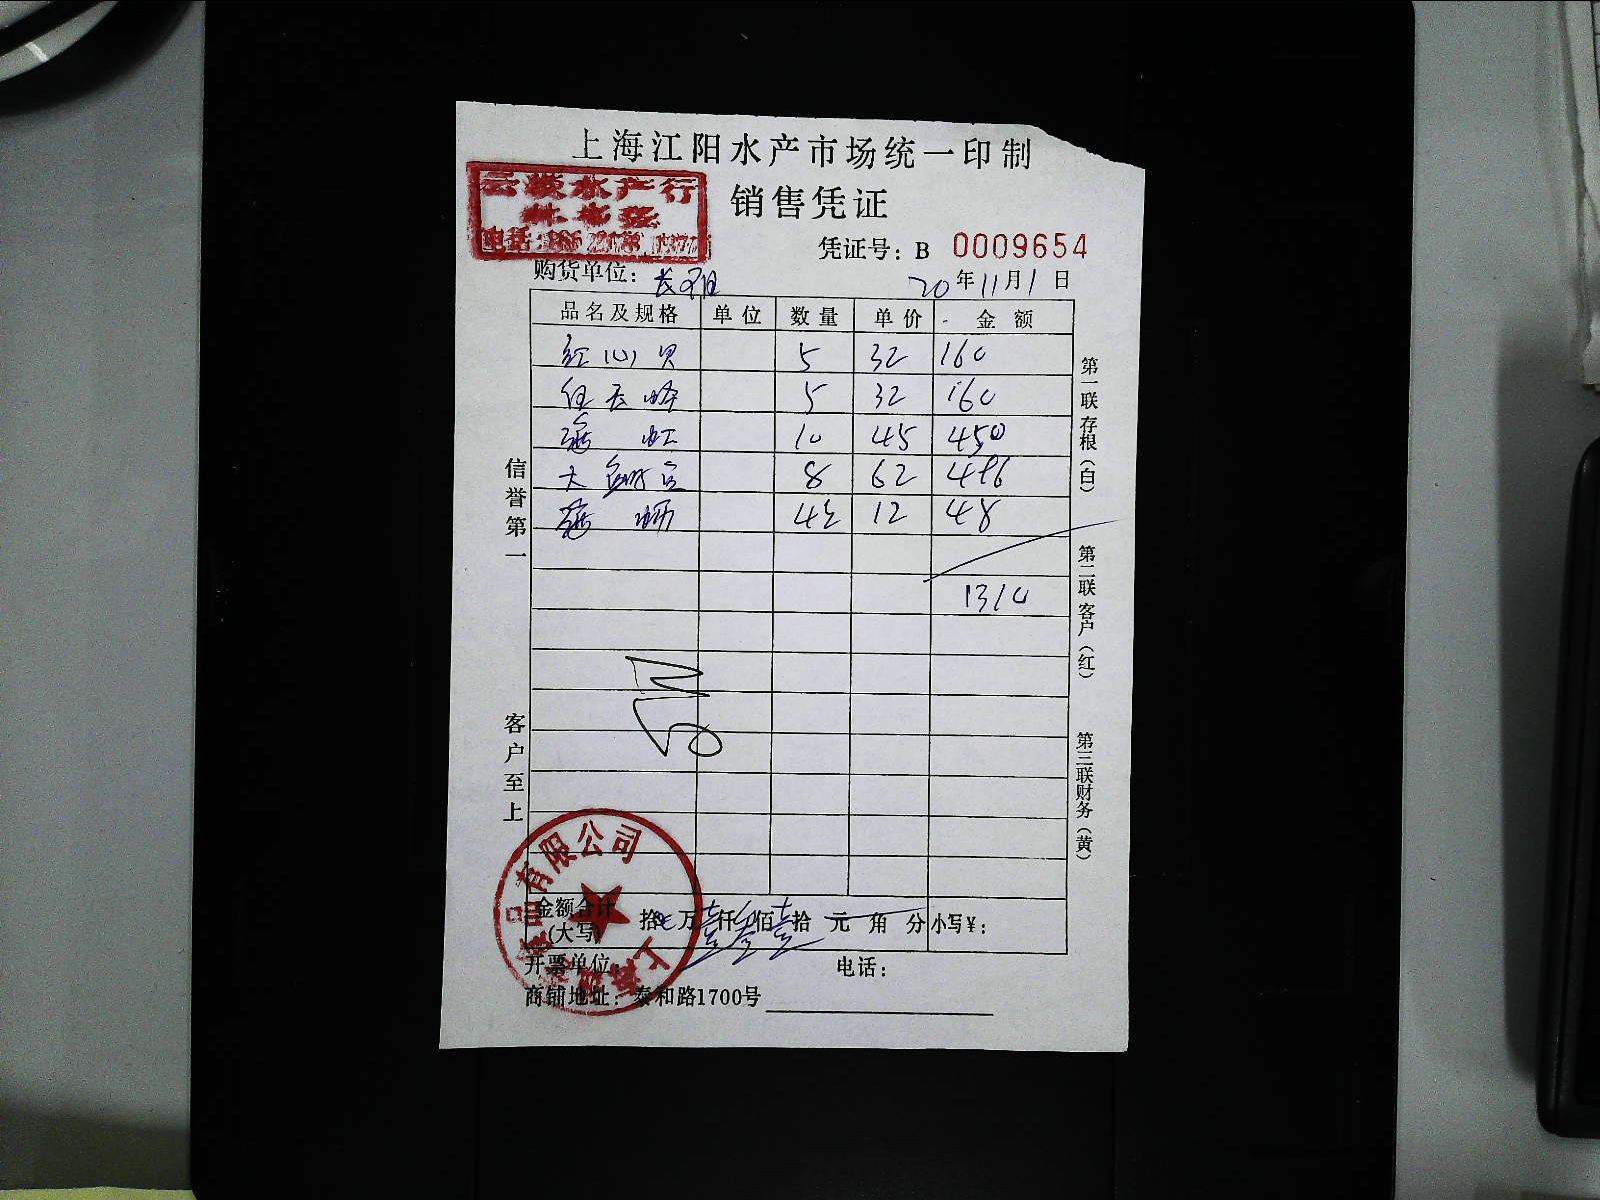 上海江阳水产市场统一印制
水产行
销售凭证
凭证号: B 0009654
购货单位:
20年11月1日
品名及规格 单位 数量 单价 金额
红心贝 5 32 160
5 32 160
10 45 450
8 62 496
12 48
1310
信誉第一
客户至上
第一联存根(白)
第二联客户(红)
第三联财务(黄)
金额合计(大写) 拾 万壹仟叁佰壹拾元角分 小写¥:
开票单位: 电话:
商铺地址: 泰和路1700号
品有限公司
上海